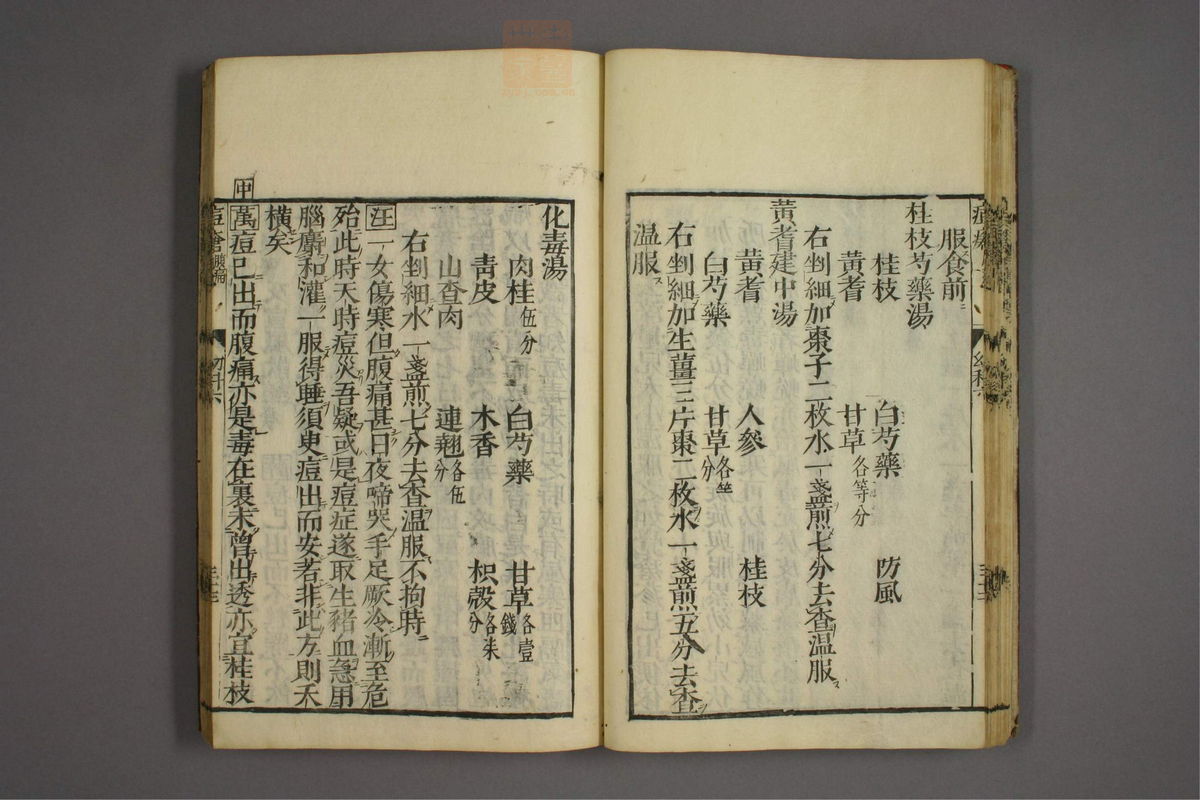 服食前
桂枝芍藥湯
桂枝 白芍藥 防風
黃耆 甘草各等分
右剉細加棗子二枚水一盞煎七分去查温服
黃耆建中湯
黃耆 人參 桂枝
白芍藥 甘草各半分
右剉細加生薑三片棗二枚水一盞煎五分去查
温服
化毒湯
肉桂伍分 白芍藥 甘草各壹錢
青皮 木香 枳殼各柒分
山查肉 連翹各伍分
右剉細水一盞煎七分去查温服不拘時
汪一女傷寒但腹痛甚日夜啼哭手足厥冷漸至危
殆此時天時痘災吾疑或是痘症遂取生豬血急用
腦麝和灌一服得睡須臾痘出而安若非此方則夭
橫矣
中
萬痘已出而腹痛亦是毒在裏未曾出透亦宜桂枝